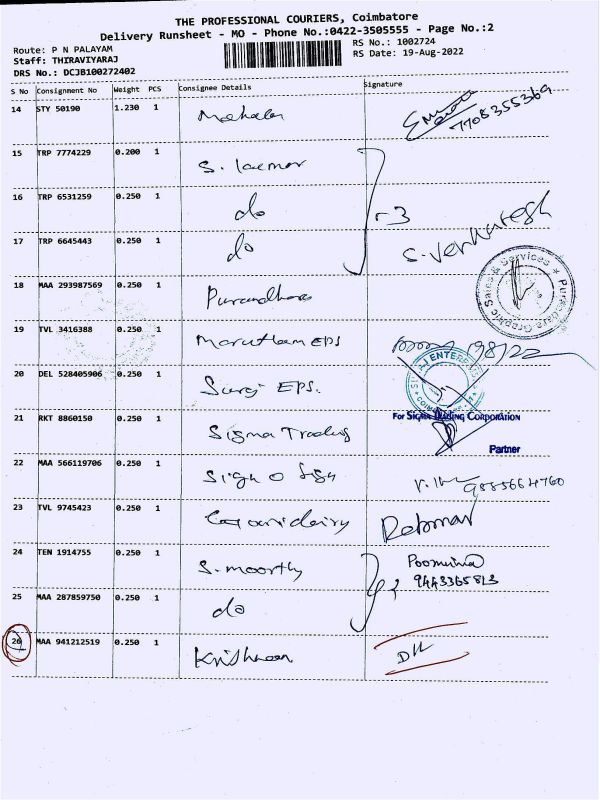 THE PROFESSIONAL COURIERS, Coimbatore
Delivery Runsheet - MO - Phone No.:0422-3505555 - Page No.:2
Route: P N PALAYAM
RS No.: 1002724
Staff: THIRAVIYARAJ
RS Date: 19-Aug-2022
DRS No.: DCJB100272402
S No Consignment No Weight PCS Consignee Details Signature
14 STY 50190 1.230 1
7708355369
15 TRP 7774229 0.200 1
16 TRP 6531259 0.250 1 do
17 TRP 6645443 0.250 1 do
S. Venkatesh
18 MAA 293987569 0.250 1
19 TVL 3416388 0.250 1 Marutham EPS
20 DEL 528405906 0.250 1 Suraj EPS.
21 RKT 8860150 0.250 1 Sigma Trading
For SIGMA TRADING CORPORATION
Partner
22 MAA 566119706 0.250 1 Sign O Sign
23 TVL 9745423 0.250 1
24 TEN 1914755 0.250 1 S. moorthy
9443365813
25 MAA 287859750 0.250 1 do
26 MAA 941212519 0.250 1 Krishnan